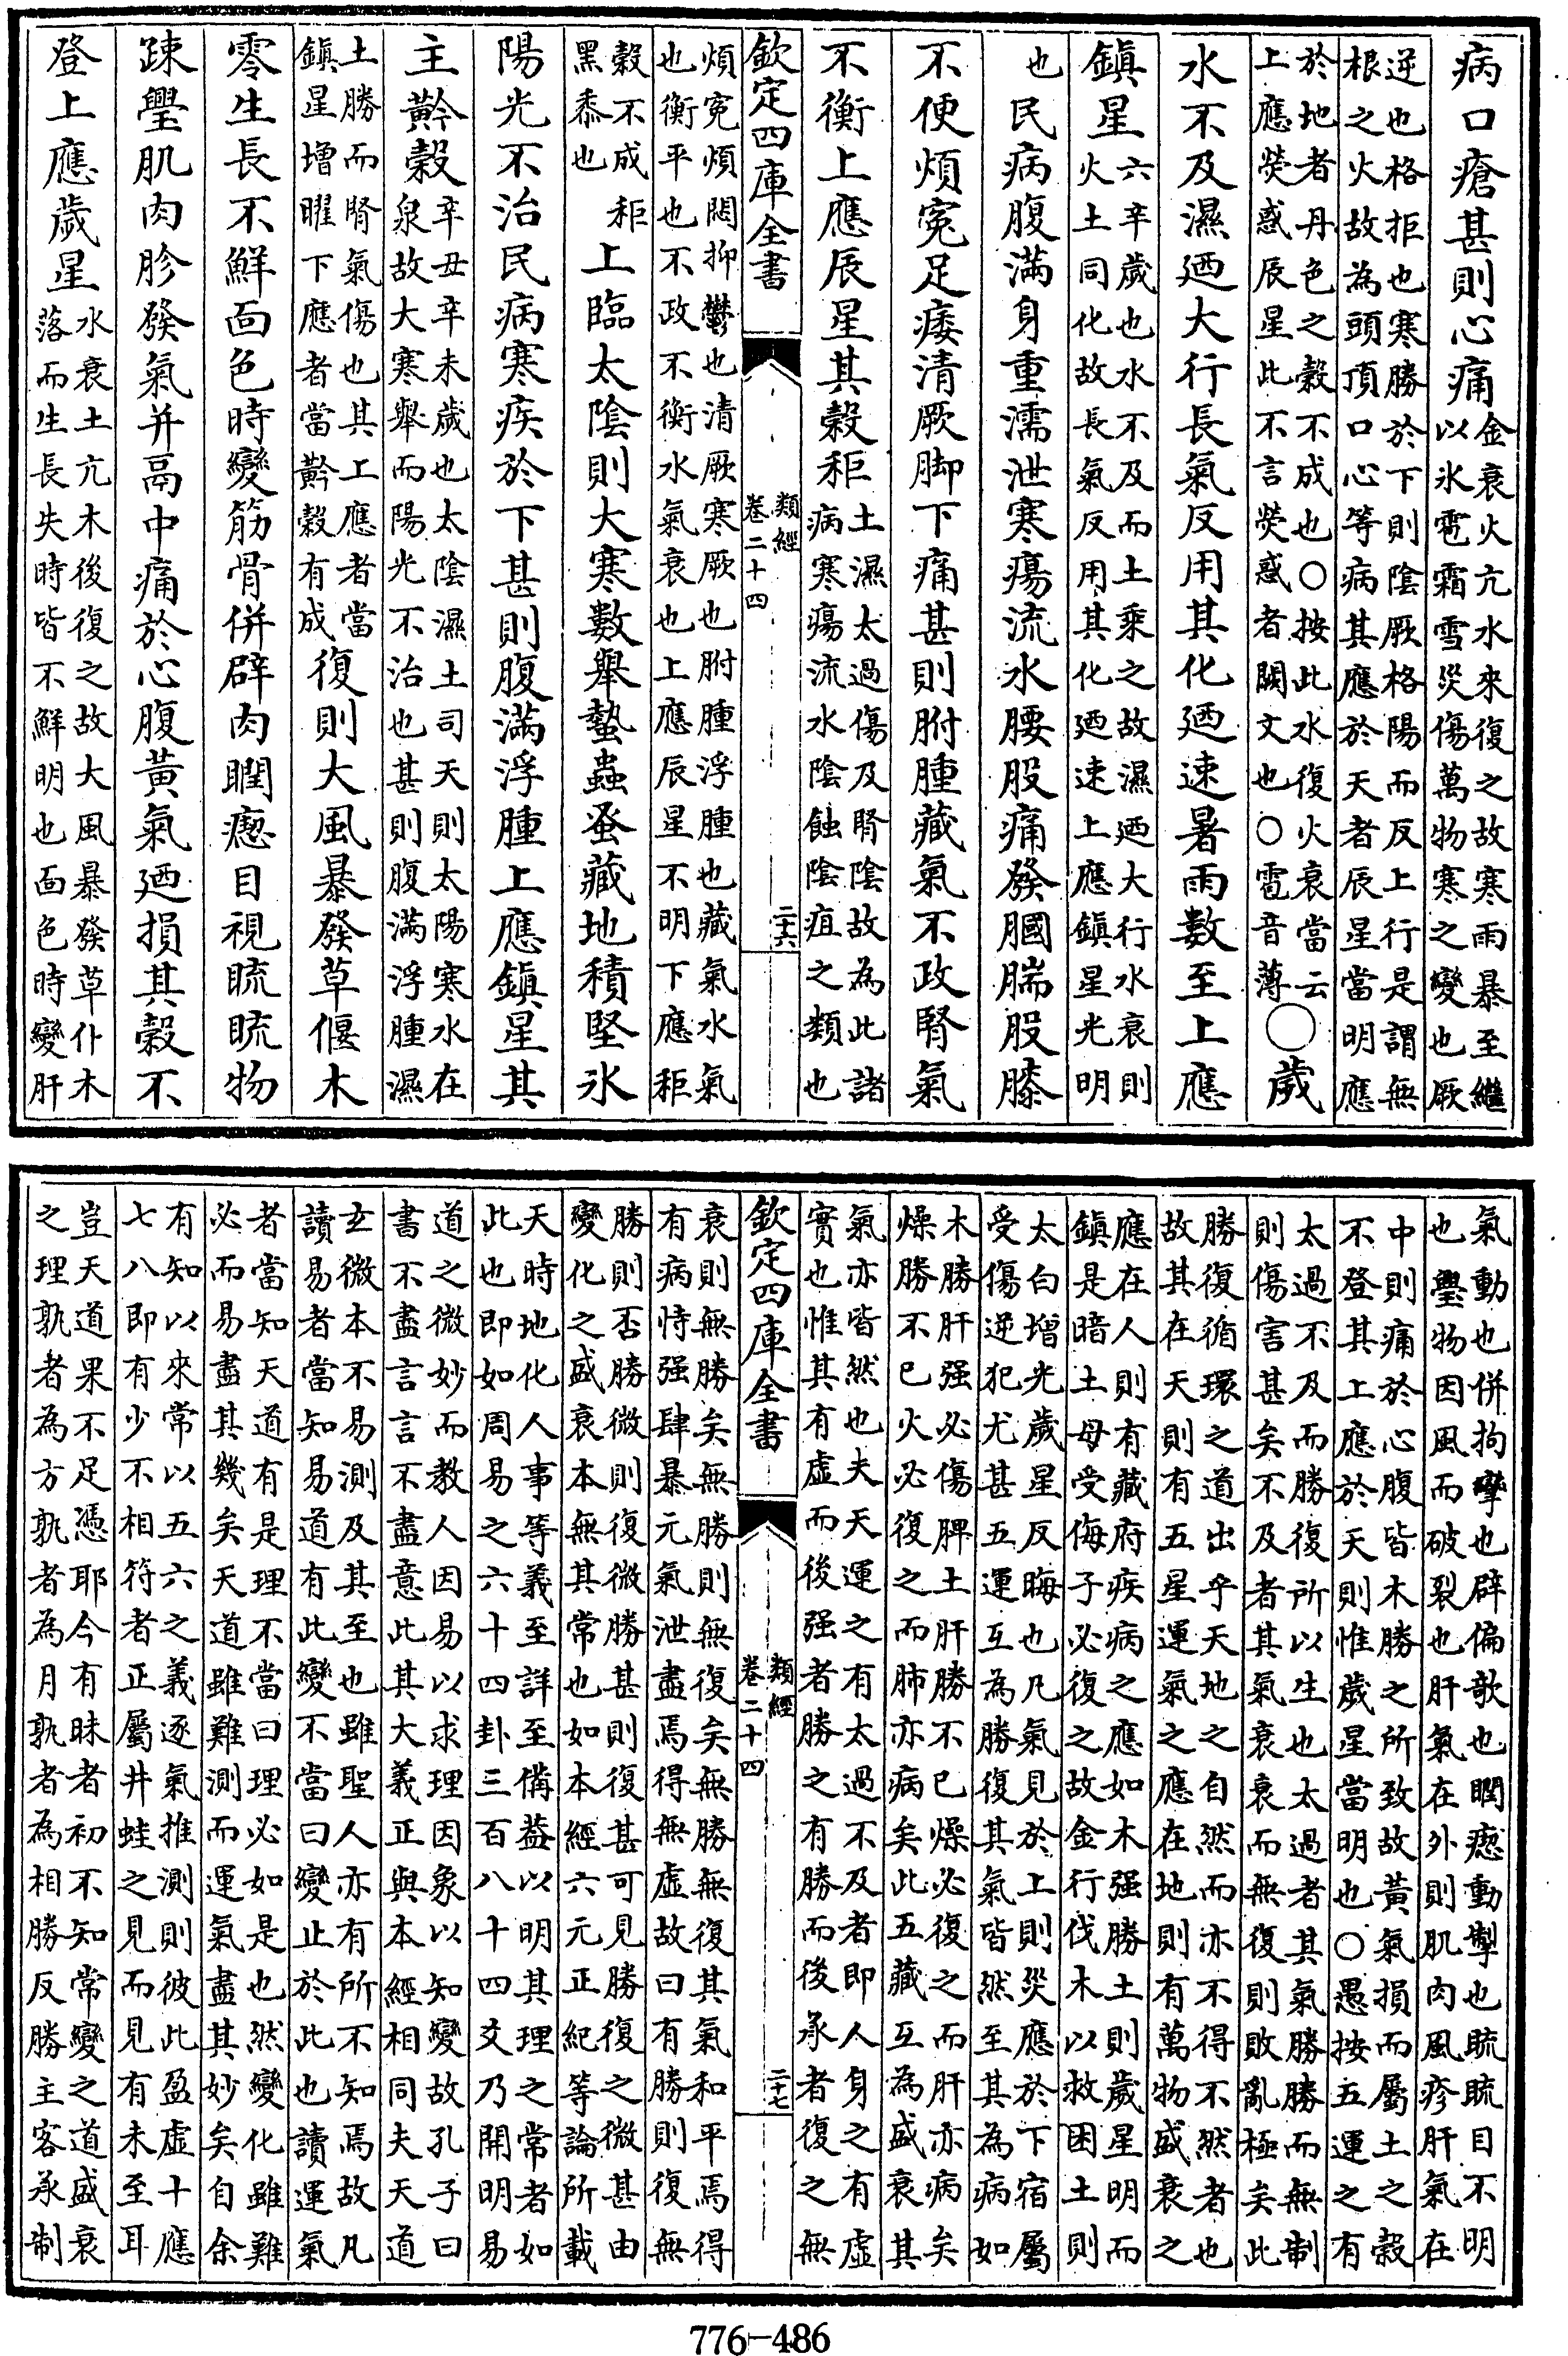 病口瘡甚則心痛金衰火亢水來復之故寒雨暴至繼
以氷雹霜雪災傷萬物寒之變也厥
逆也格拒也寒勝於下則陰厥格陽而反上行是謂無
根之火故為頭頂口心等病其應於天者辰星當明應
於地者丹色之穀不成也○按此水復火衰當云
上應熒惑辰星此不言熒惑者闕文也○雹音薄○歲
水不及濕迺大行長氣反用其化迺速暑雨數至上應
鎮星六辛歲也水不及而土乘之故濕迺大行水衰則
火土同化故長氣反用其化迺速上應鎮星光明
也民病腹滿身重濡泄寒瘍流水腰股痛發膕腨股膝
不便煩寃足痿清厥脚下痛甚則胕腫藏氣不政腎氣
不衡上應辰星其穀秬土濕太過傷及腎陰故為此諸
病寒瘍流水陰蝕陰疽之類也
欽定四庫全書
類經
卷二十四
二六
煩寃煩悶抑鬱也清厥寒厥也胕腫浮腫也藏氣水氣
也衡平也不政不衡水氣衰也上應辰星不明下應秬
穀不成秬
黑黍也上臨太陰則大寒數舉蟄蟲蚤藏地積堅氷
陽光不治民病寒疾於下甚則腹滿浮腫上應鎮星其
主黅穀辛丑辛未歲也太陰濕土司天則太陽寒水在
泉故大寒舉而陽光不治也甚則腹滿浮腫濕
土勝而腎氣傷也其上應者當
鎮星增曜下應者當黅穀有成復則大風暴發草偃木
零生長不鮮面色時變筋骨併辟肉瞤瘛目視䀮䀮物
疎璺肌肉胗發氣并鬲中痛於心腹黃氣迺損其穀不
登上應歲星水衰土亢木後復之故大風暴發草仆木
落而生長失時皆不鮮明也面色時變肝
氣動也併拘攣也辟偏欹也瞤瘛動掣也䀮䀮目不明
也璺物因風而破裂也肝氣在外則肌肉風疹肝氣在
中則痛於心腹皆木勝之所致故黃氣損而屬土之穀
不登其上應於天則惟歲星當明也○愚按五運之有
太過不及而勝復所以生也太過者其氣勝勝而無制
則傷害甚矣不及者其氣衰衰而無復則敗亂極矣此
勝復循環之道出乎天地之自然而亦不得不然者也
故其在天則有五星運氣之應在地則有萬物盛衰之
應在人則有藏府疾病之應如木强勝土則歲星明而
鎮星暗土母受侮子必復之故金行伐木以救困土則
太白增光歲星反晦也凡氣見於上則災應於下宿屬
受傷逆犯尤甚五運互為勝復其氣皆然至其為病如
木勝肝强必傷脾土肝勝不已燥必復之而肝亦病矣
燥勝不已火必復之而肺亦病矣此五藏互為盛衰其
氣亦皆然也夫天運之有太過不及者即人身之有虛
實也惟其有虛而後强者勝之有勝而後承者復之無
欽定四庫全書
類經
卷二十四
二十七
衰則無勝矣無勝則無復矣無勝無復其氣和平焉得
有病恃强肆暴元氣泄盡焉得無虛故曰有勝則復無
勝則否勝微則復微勝甚則復甚可見勝復之微甚由
變化之盛衰本無其常也如本經六元正紀等論所載
天時地化人事等義至詳至備葢以明其理之常者如
此也即如周易之六十四卦三百八十四爻乃開明易
道之微妙而教人因易以求理因象以知變故孔子曰
書不盡言言不盡意此其大義正與本經相同夫天道
玄微本不易測及其至也雖聖人亦有所不知焉故凡
讀易者當知易道有此變不當曰變止於此也讀運氣
者當知天道有是理不當曰理必如是也然變化雖難
必而易盡其幾矣天道雖難測而運氣盡其妙矣自余
有知以來常以五六之義逐氣推測則彼此盈虛十應
七八即有少不相符者正屬井蛙之見而見有未至耳
豈天道果不足憑耶今有昧者初不知常變之道盛衰
之理孰者為方孰者為月孰者為相勝反勝主客承制
776-486